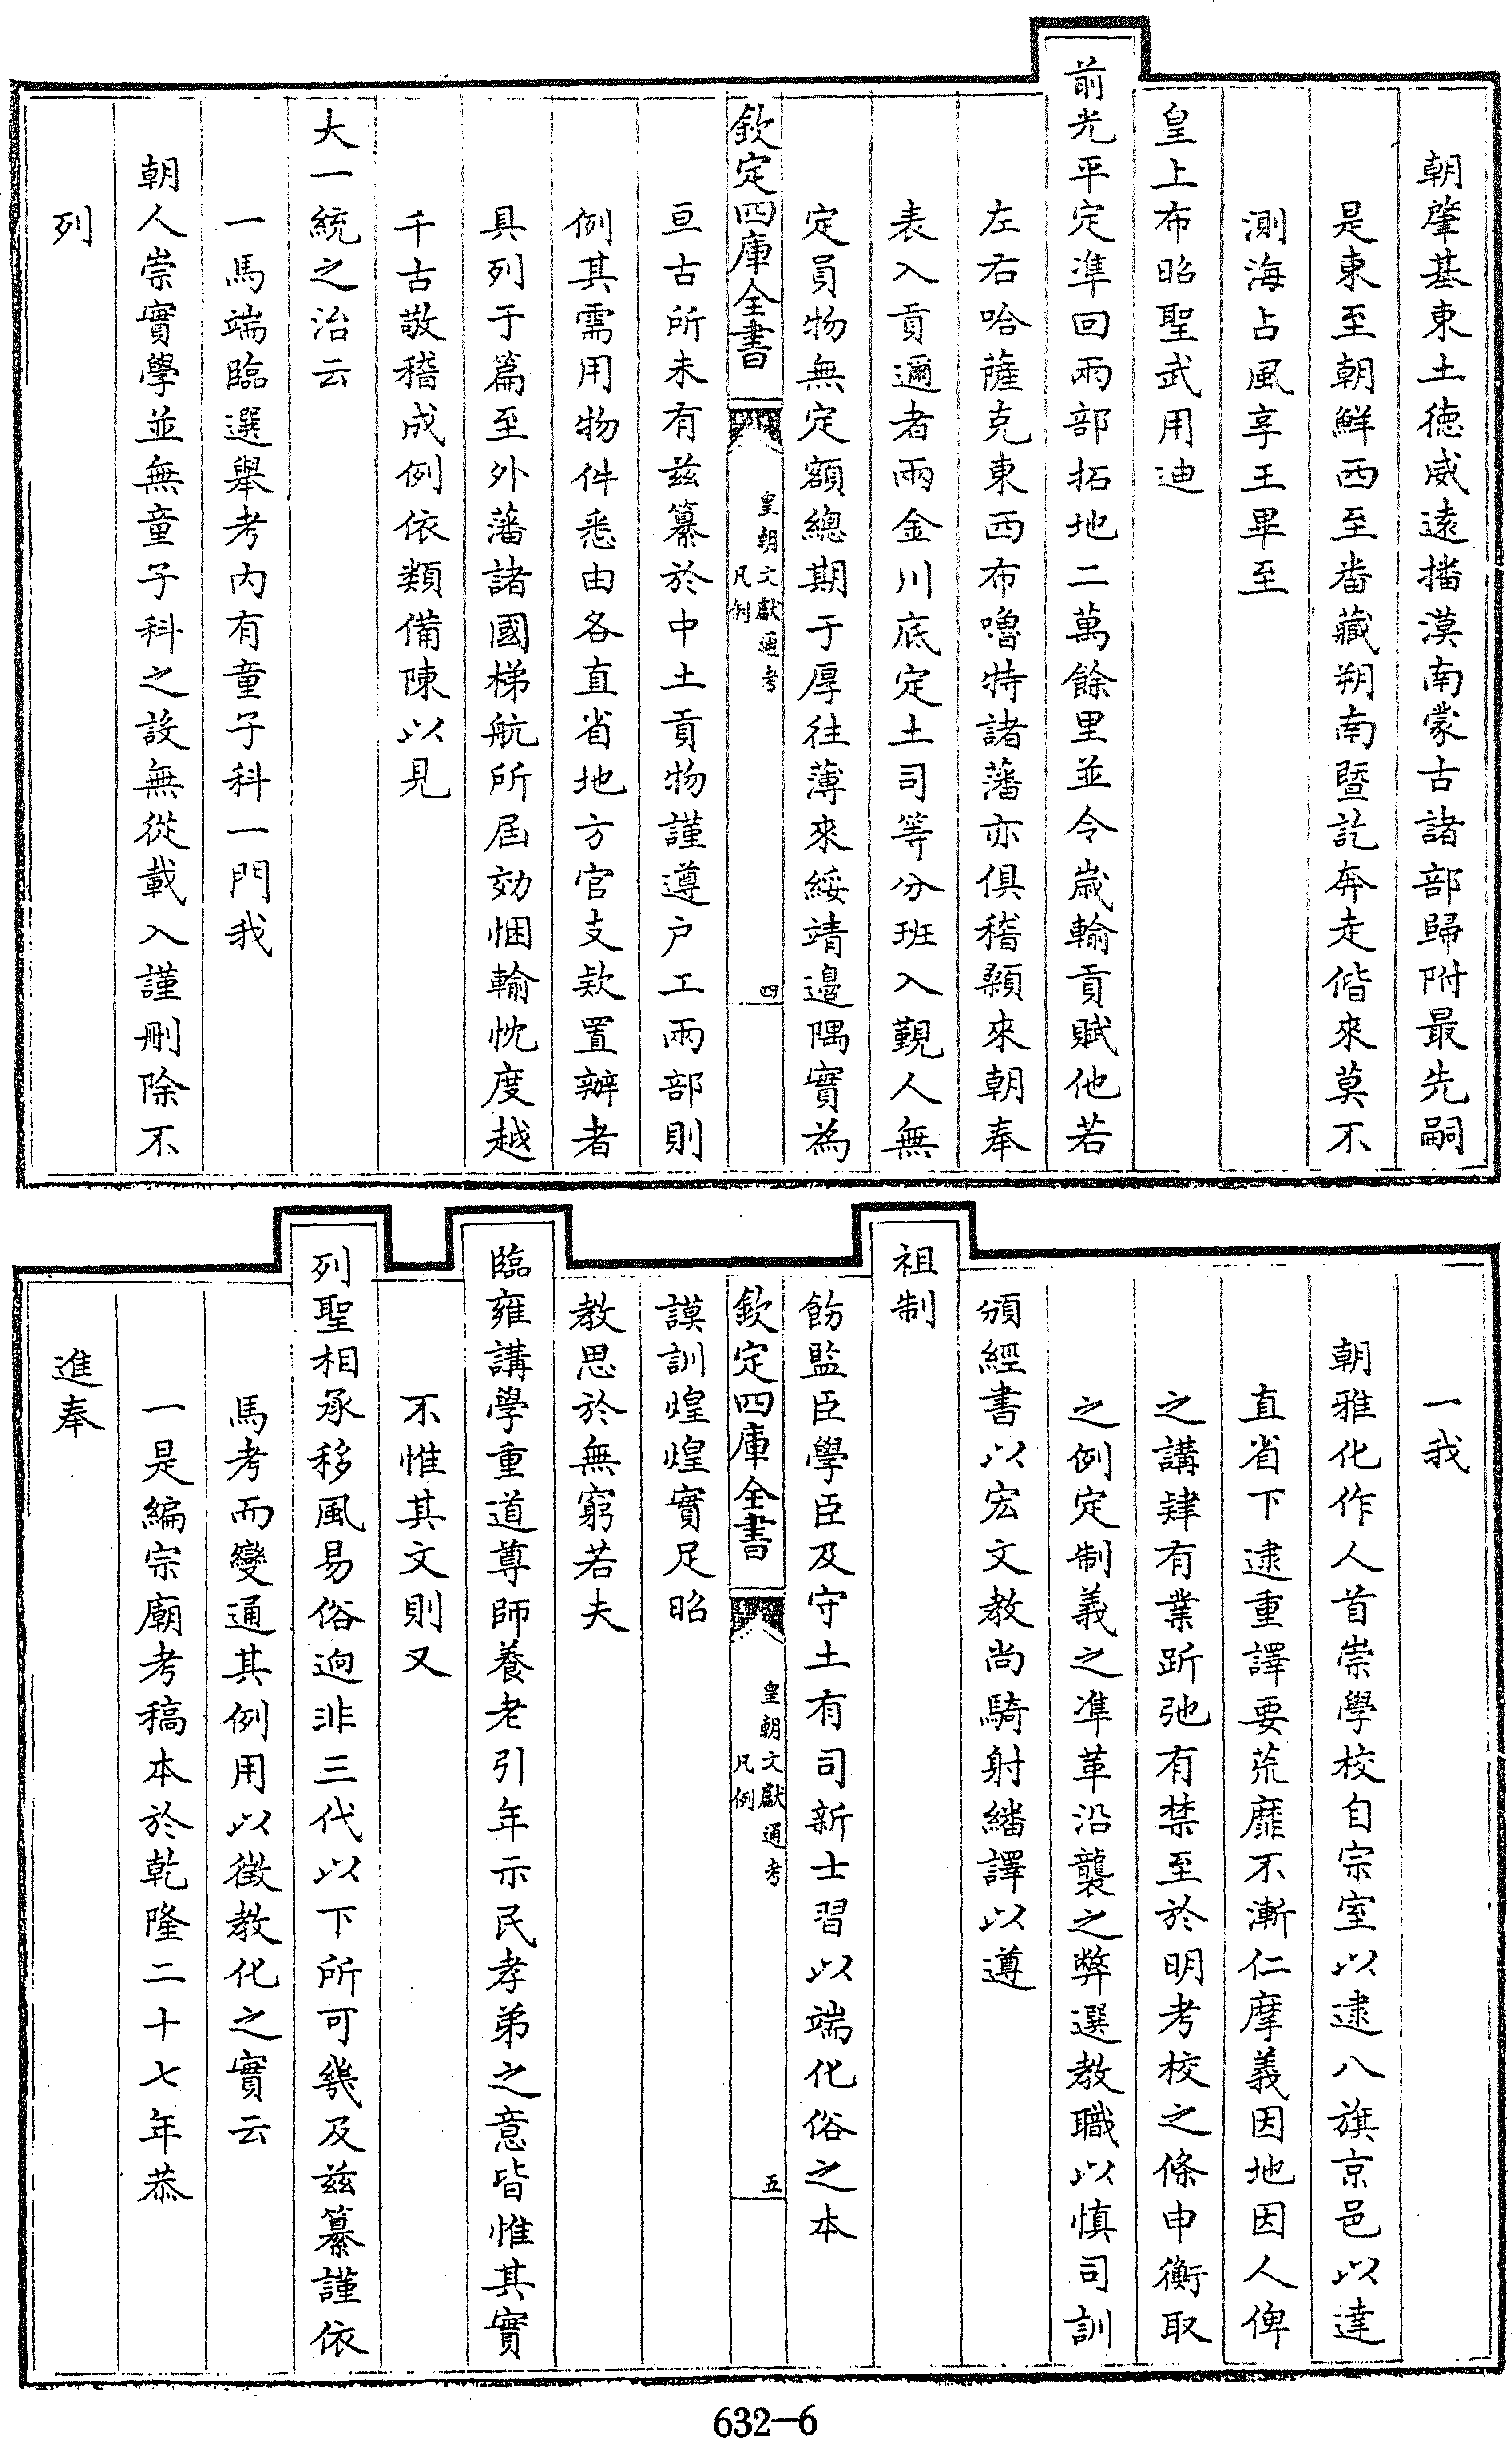 朝肇基東土德威遠播漠南蒙古諸部歸附最先嗣
是東至朝鮮西至番藏朔南暨訖奔走偕來莫不
測海占風享王畢至
皇上布昭聖武用迪
前光平定準回兩部拓地二萬餘里並令歲輸貢賦他若
左右哈薩克東西布嚕特諸藩亦俱稽顙來朝奉
表入貢邇者兩金川底定土司等分班入覲人無
定員物無定額總期于厚往薄來綏靖邊隅實為
欽定四庫全書
皇朝文獻通考
凡例
四
亘古所未有兹纂於中土貢物謹遵户工兩部則
例其需用物件悉由各直省地方官支欵置辦者
具列于篇至外藩諸國梯航所屆効悃輸忱度越
千古敬稽成例依類備陳以見
大一統之治云
一馬端臨選舉考内有童子科一門我
朝人崇實學並無童子科之設無從載入謹刪除不
列
一我
朝雅化作人首崇學校自宗室以逮八旗京邑以達
直省下逮重譯要荒靡不漸仁摩義因地因人俾
之講肄有業跅弛有禁至於明考校之條申衡取
之例定制義之準革沿襲之弊選教職以慎司訓
頒經書以宏文教尚騎射繙譯以遵
祖制
飭監臣學臣及守土有司新士習以端化俗之本
欽定四庫全書
皇朝文獻通考
凡例
五
謨訓煌煌實足昭
教思於無窮若夫
臨雍講學重道尊師養老引年示民孝弟之意皆惟其實
不惟其文則又
列聖相承移風易俗逈非三代以下所可幾及兹纂謹依
馬考而變通其例用以徵教化之實云
一是編宗廟考稿本於乾隆二十七年恭
進奉
632-6